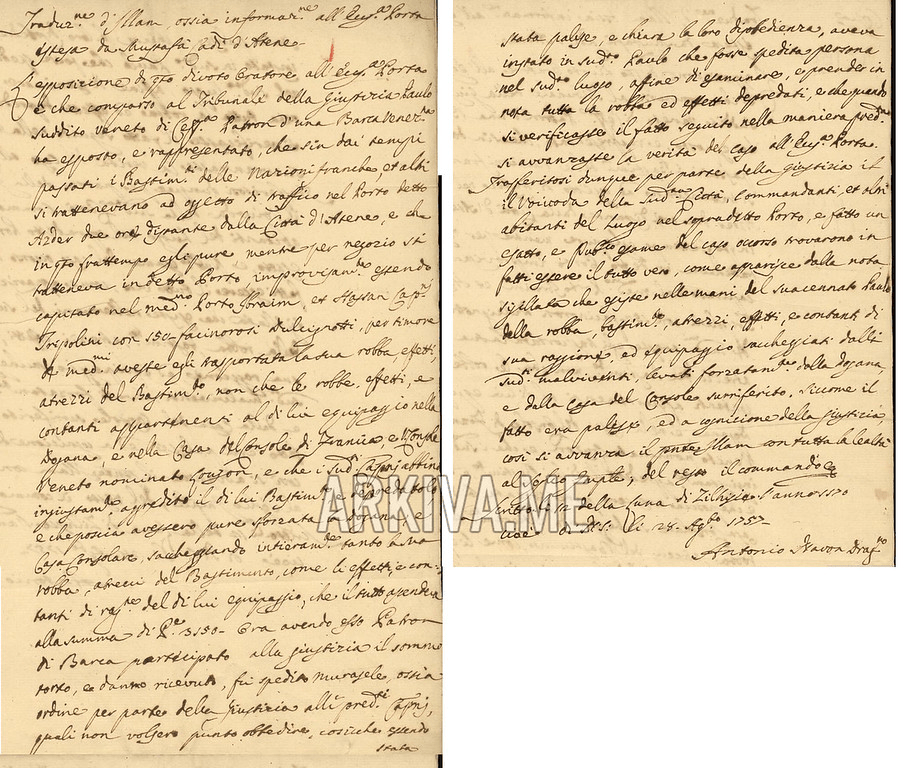 Traduz.ne d'Illam ossia informaz.ne all'Ecc.sa Porta
estesa da Mustafà Cadì d'Atene-
L'espposizione di q.to divoto Oratore all'Ecc.sa Porta
è che comparso al Tribunale della Giustizia Paulo
suddito veneto di Patron d'una Barca Venez.na
ha esposto, e rappresentato, che sin dai tempi
passati i Bastim.ti delle Nazioni franche et altri
si trattenevano ad oggetto di traffico nel Porto detto
Azder due ore distante dalla Città d'Atene, e che
in q.to frattempo egli pure mentre per negozio si
tratteneva in detto Porto, improvisam.te essendo
capitato nel med.mo Porto Ibraim, et Hassan Cap.ni
Trispolini con 150- facinorosi Dulcignotti, per timore
de med.mi avesse egli trasportata la sua robba, effetti,
atrezzi del Bastim.to, non che le robbe, effetti, e
contanti appartinenti al di lui equipaggio nella
Dogana, e nella Casa del Console di Francia, e V.Console
Veneto nominato e che i Sud.i Cap.nj abbino
ingiustam.te agredito il di lui Bastim.to e depredatolo
e che poscia avessero pure sforzata la Dogana, e
Casa Consolare, sacheggiando intieram.te tanto la sua
robba, atrecci del Bastimento, come le effetti, e con-
tanti di rag.ne del di lui equipaggio, che il tutto ascendeva
alla summa di P.e 3150- Ora avendo esso Patron
di Barca participato alla giustizia il sommo
torto, e danno ricevuto, fù spedito murasele, ossia
ordine per parte della Giustizia alli pred.ti Cap.nj,
quali non volsero punto obbedire, cosicche essendo
stata
stata palese, e chiara la loro disobedienza, aveva
instato in sud.to Paulo che fosse spedita persona
nel sud.to luogo, affine d'esaminare, e prender in
nota tutta la robba ed effetti depredati, e che quando
si verificasse il fatto seguito nella maniera pred.ta
si avvanzasse la verità del caso all'Ecc.sa Porta.
Trasferitosi dunque per parte della Giustizia il
il Voivoda della Sud.ta Città, commandanti, et altri
abitanti del Luogo nel sopradetto Porto, e fatto un
esatto, e Publ.co esame del caso occorso trovarono in
fatti essere il tutto vero, come apparisce dalla nota
sigillata che esiste nelle mani del suacennato Paulo
della robba, bastim.to, atrezzi, effetti, e contanti di
sua raggione, ed equipaggio sacheggiati dalli
Sud.i malviventi, levati forzatam.te dalla dogana,
e dalla casa del Console surriferito. Siccome il
fatto era palese, ed a cognizione della giusticia,
così si avvanza il p.nte Illam con tutta la lealtà
al del resto il commando &
scritto li 12 della Luna di Zilhigge l'anno 1170
cioè li 28. Ag.to 1757-
Antonio Navon Drag.no
ARKIVA.ME